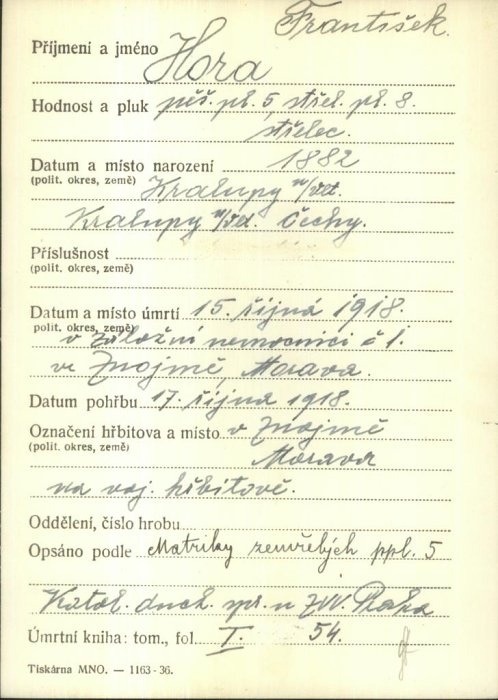 František.
Příjmení a jméno Hora
Hodnost a pluk pěš. pl. 5, střel. pl. 8.
střelec.
Datum a místo narození 1882
(polit. okres, země) Kralupy n/Vlt.
Kralupy n/Vlt. Čechy.
Příslušnost
(polit. okres, země)
Datum a místo úmrtí 15. října 1918.
polit. okres, země) v záložní nemocnici č 1.
ve Znojmě, Morava.
Datum pohřbu 17. října 1918.
Označení hřbitova a místo v Znojmě
(polit. okres, země) Morava
na voj. hřbitově.
Oddělení, číslo hrobu
Opsáno podle Matriky zemřelých ppl. 5
Katol. duch. spr. u ZVV. Praha
Úmrtní kniha: tom., fol. I. 54.
Tiskárna MNO. — 1163-36.